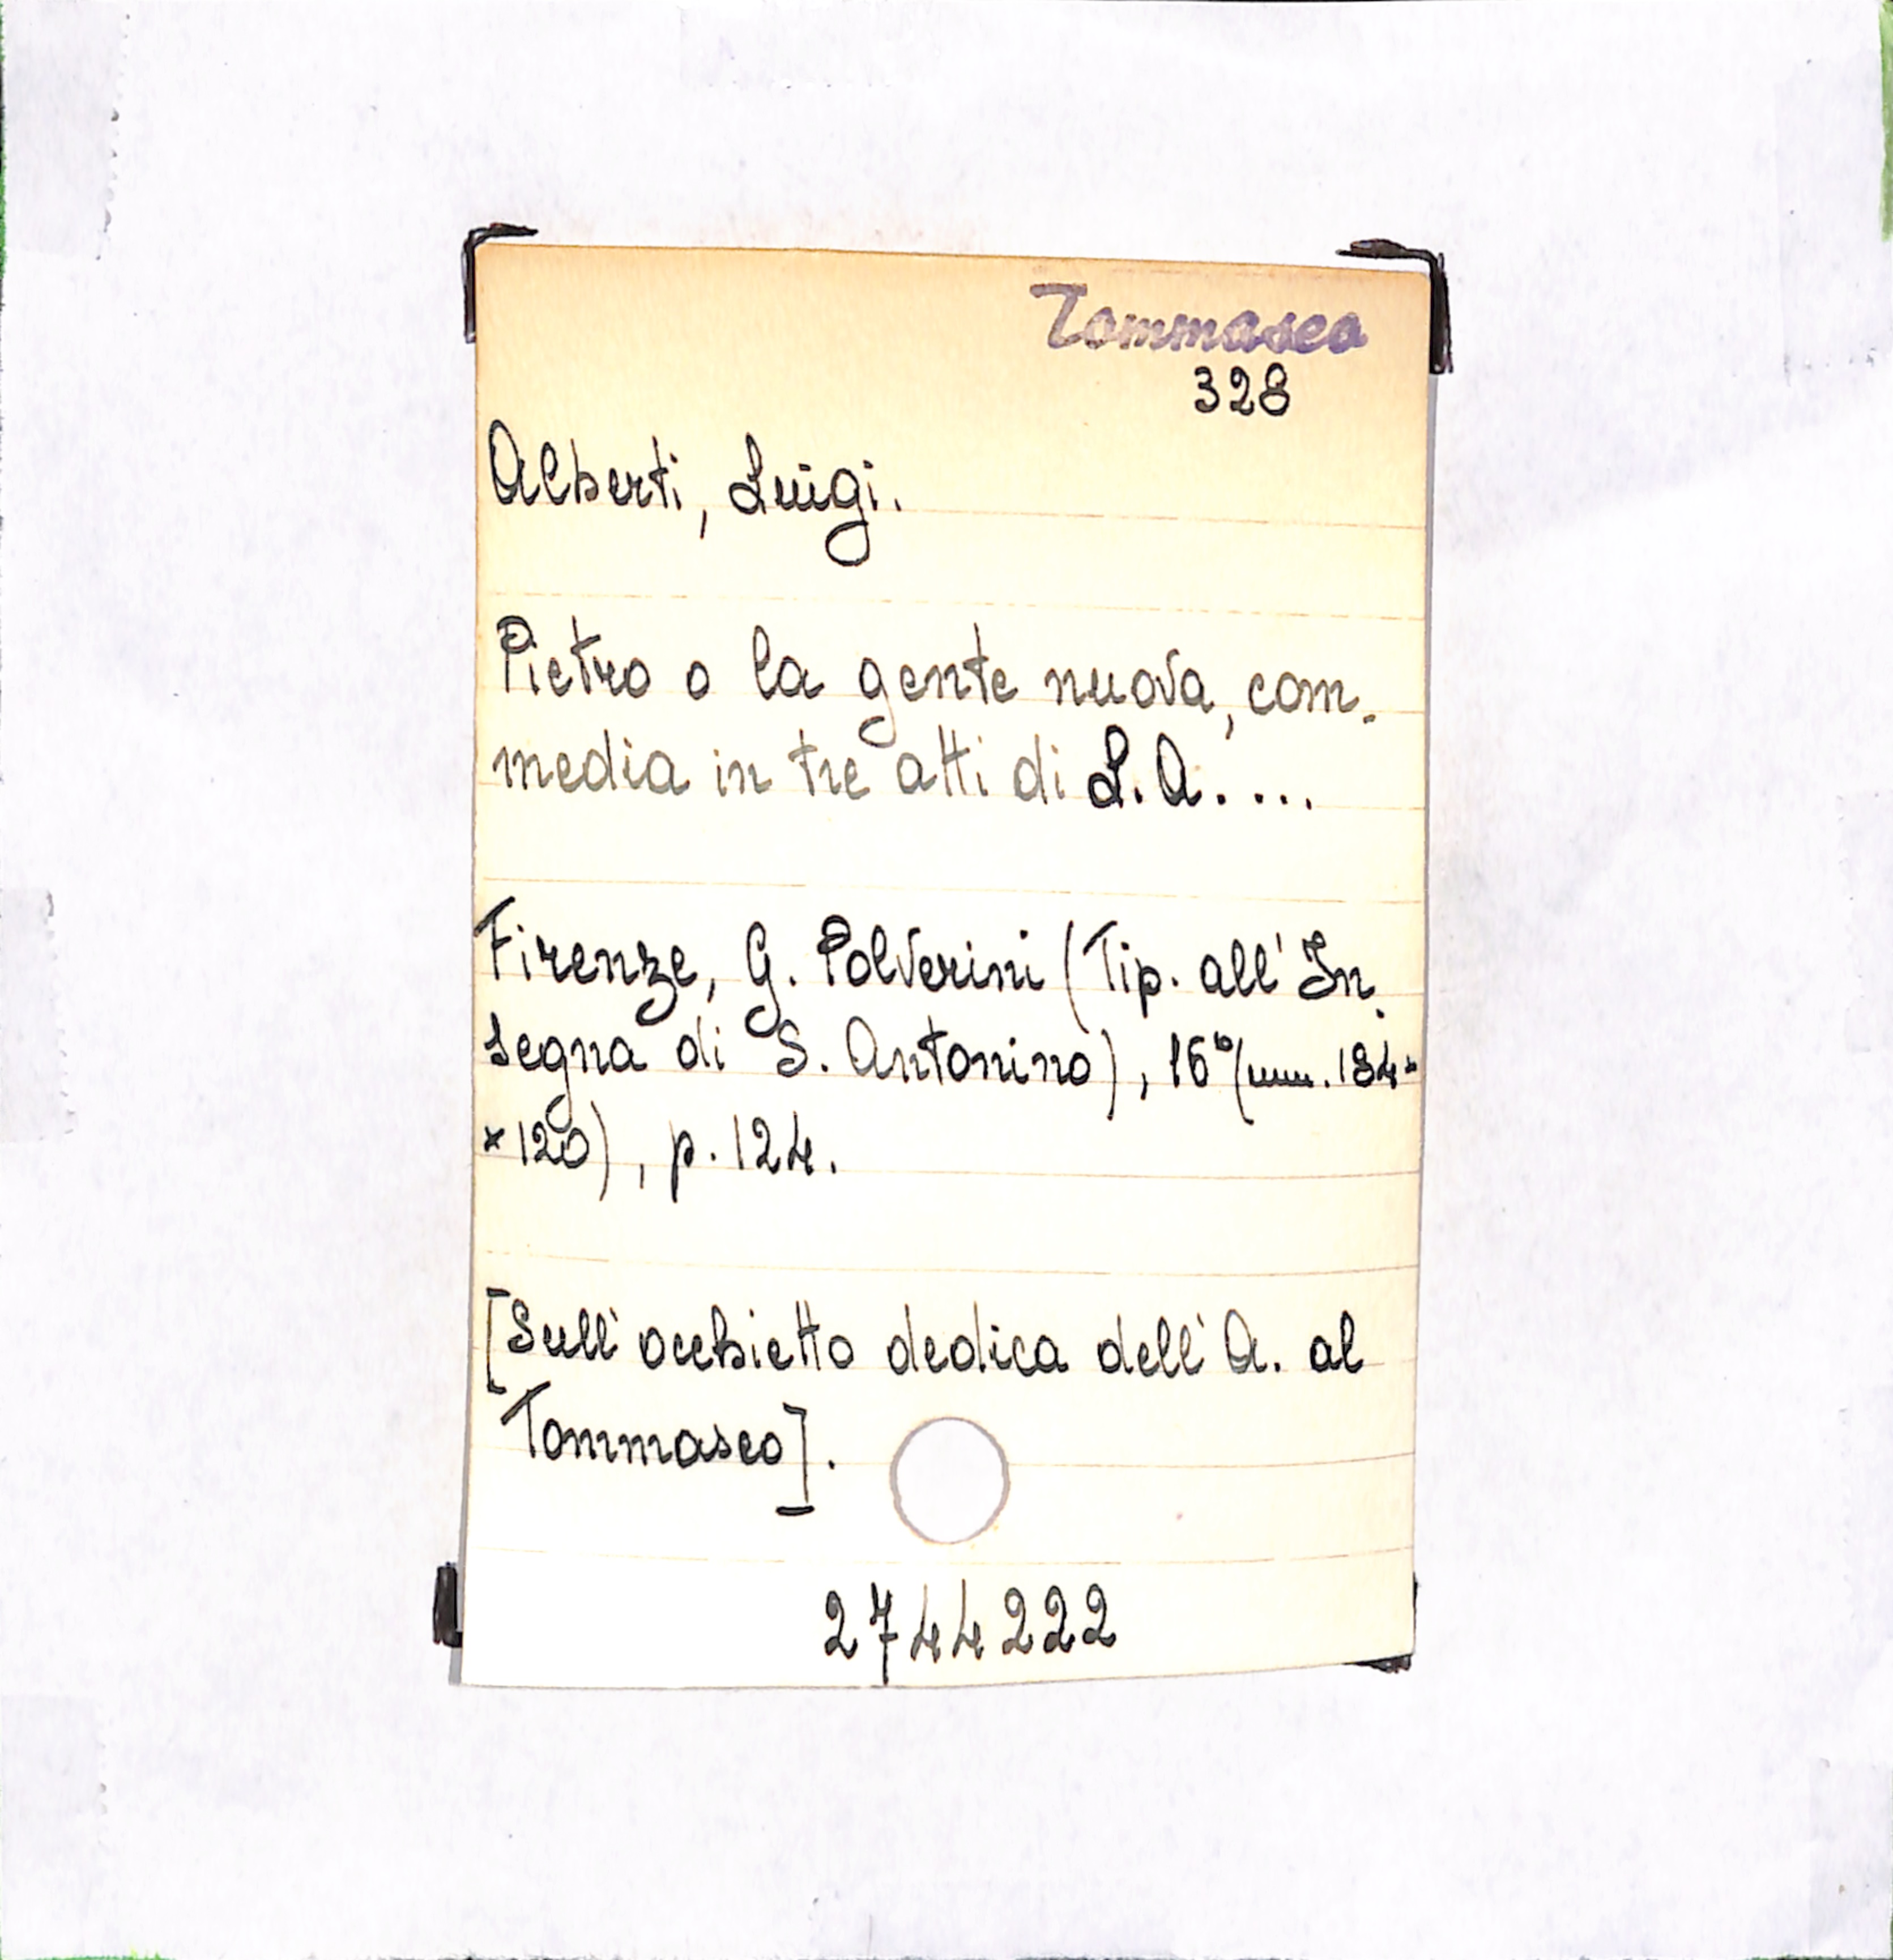 Tommaseo
328
Alberti, Luigi.
Pietro o la gente nuova, com-
media in tre atti di L. A. ...
Firenze, G. Polverini (Tip. all'In-
segna di S. Antonino), 16° (mm. 184×
×120), p. 124.
[Sull'occhietto dedica dell'A. al
Tommaseo].
2744222